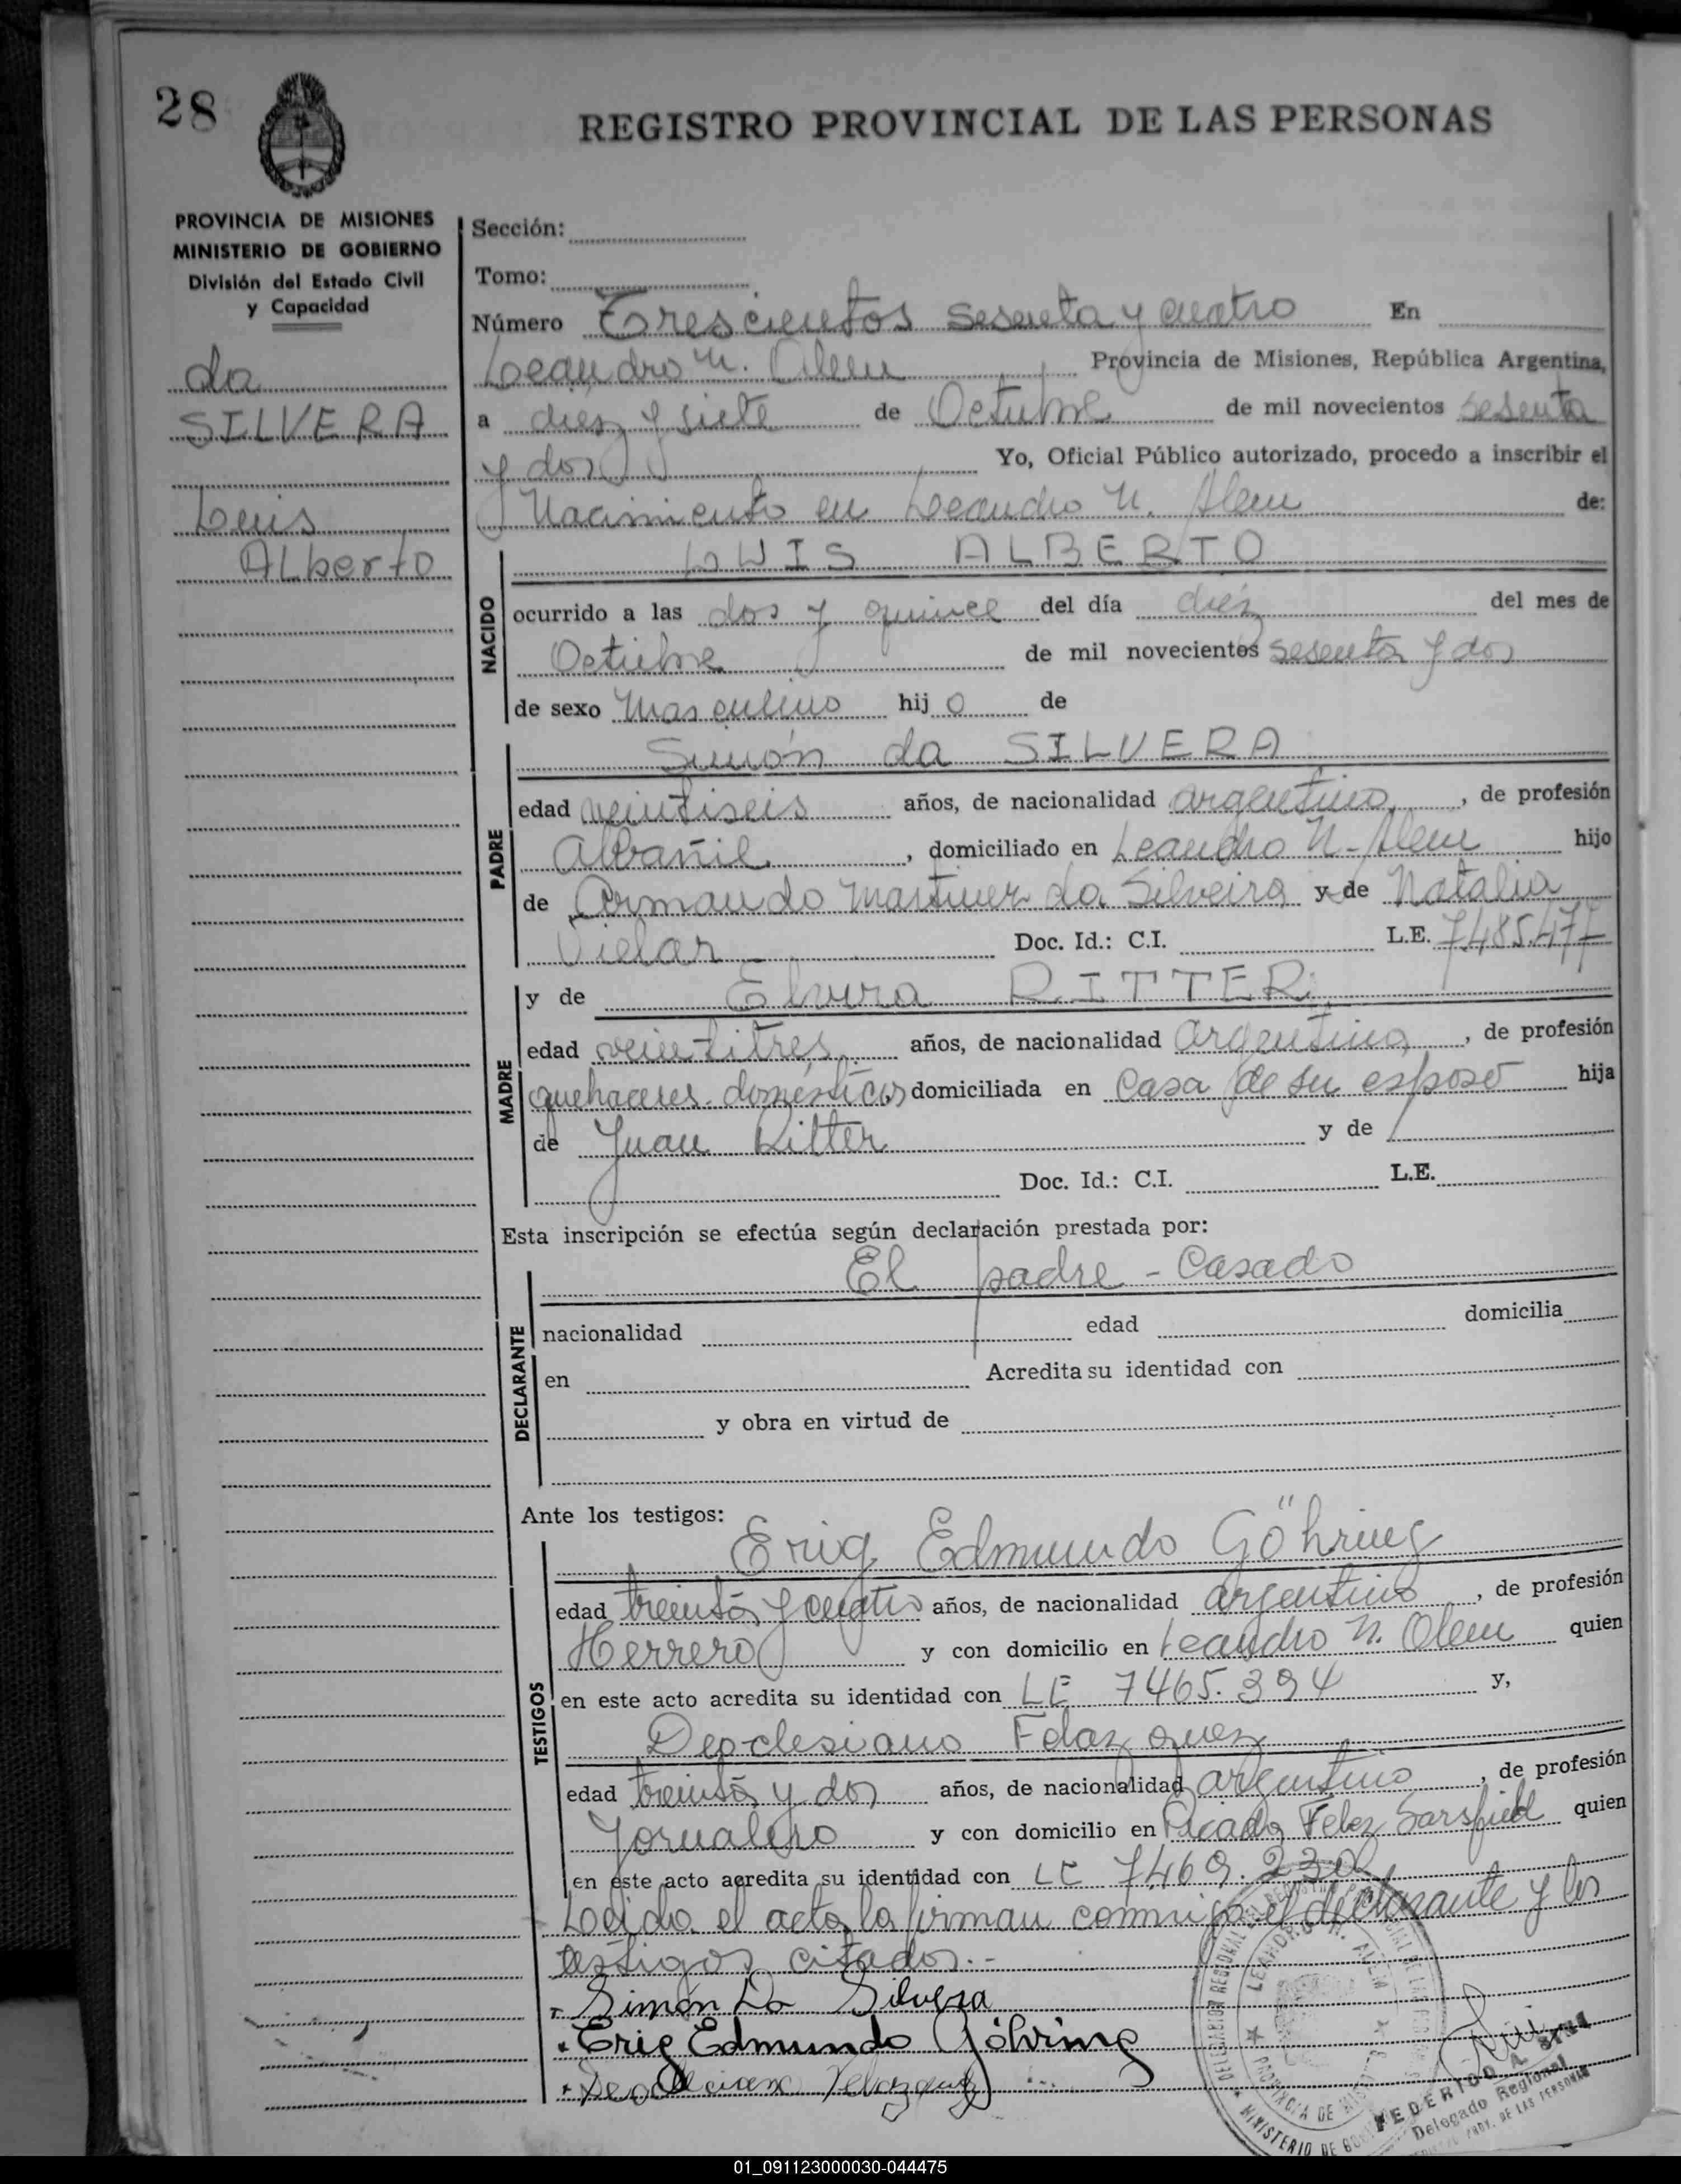 28
REGISTRO PROVINCIAL DE LAS PERSONAS
PROVINCIA DE MISIONES
MINISTERIO DE GOBIERNO
División del Estado Civil
y Capacidad
da
SILVERA
Luis
ALberto
Sección:
Tomo:
Número Trescientos sesenta y cuatro En
Leandro N. Alem Provincia de Misiones, República Argentina,
a diez y siete de Octubre de mil novecientos sesenta
y dos Yo, Oficial Público autorizado, procedo a inscribir el
Nacimiento en Leandro N. Alem de:
NACIDO
LUIS ALBERTO
ocurrido a las dos y quince del día diez del mes de
Octubre de mil novecientos sesenta y dos
de sexo Masculino hij o de
PADRE
Simón da SILVERA
edad veintiseis años, de nacionalidad argentino, de profesión
Albañil, domiciliado en Leandro N. Alem hijo
de Armando Martinez da Silveira y de Natalia
Vielar Doc. Id.: C.I. L.E. 7.485.477
MADRE
y de Elvira RITTER
edad veintitres años, de nacionalidad argentina, de profesión
quehaceres domésticos domiciliada en Casa de su esposo hija
de Juan Ritter y de
Doc. Id.: C.I. L.E.
Esta inscripción se efectúa según declaración prestada por:
El padre - Casado
DECLARANTE
nacionalidad edad domicilia
en Acredita su identidad con
y obra en virtud de
Ante los testigos:
TESTIGOS
Erig Edmundo Göhring
edad treinta y cuatro años, de nacionalidad argentino, de profesión
Herrero y con domicilio en Leandro N. Alem quien
en este acto acredita su identidad con LE 7465.394 y,
Deoclesiano Felazquez
edad treinta y dos años, de nacionalidad argentino, de profesión
Jornalero y con domicilio en Picada Felez Sarsfield quien
en este acto acredita su identidad con LE 7.469.230
Leída el acta la firman conmigo el declarante y los
testigos citados.-
Simón Da Silvera
Erig Edmundo Göhring
Velazquez
LEANDRO N. ALEM
PROVINCIA DE MISIONES
MINISTERIO DE
FEDERICO A.
Delegado Regional
DE LAS PERSONAS
01_091123000030-044475